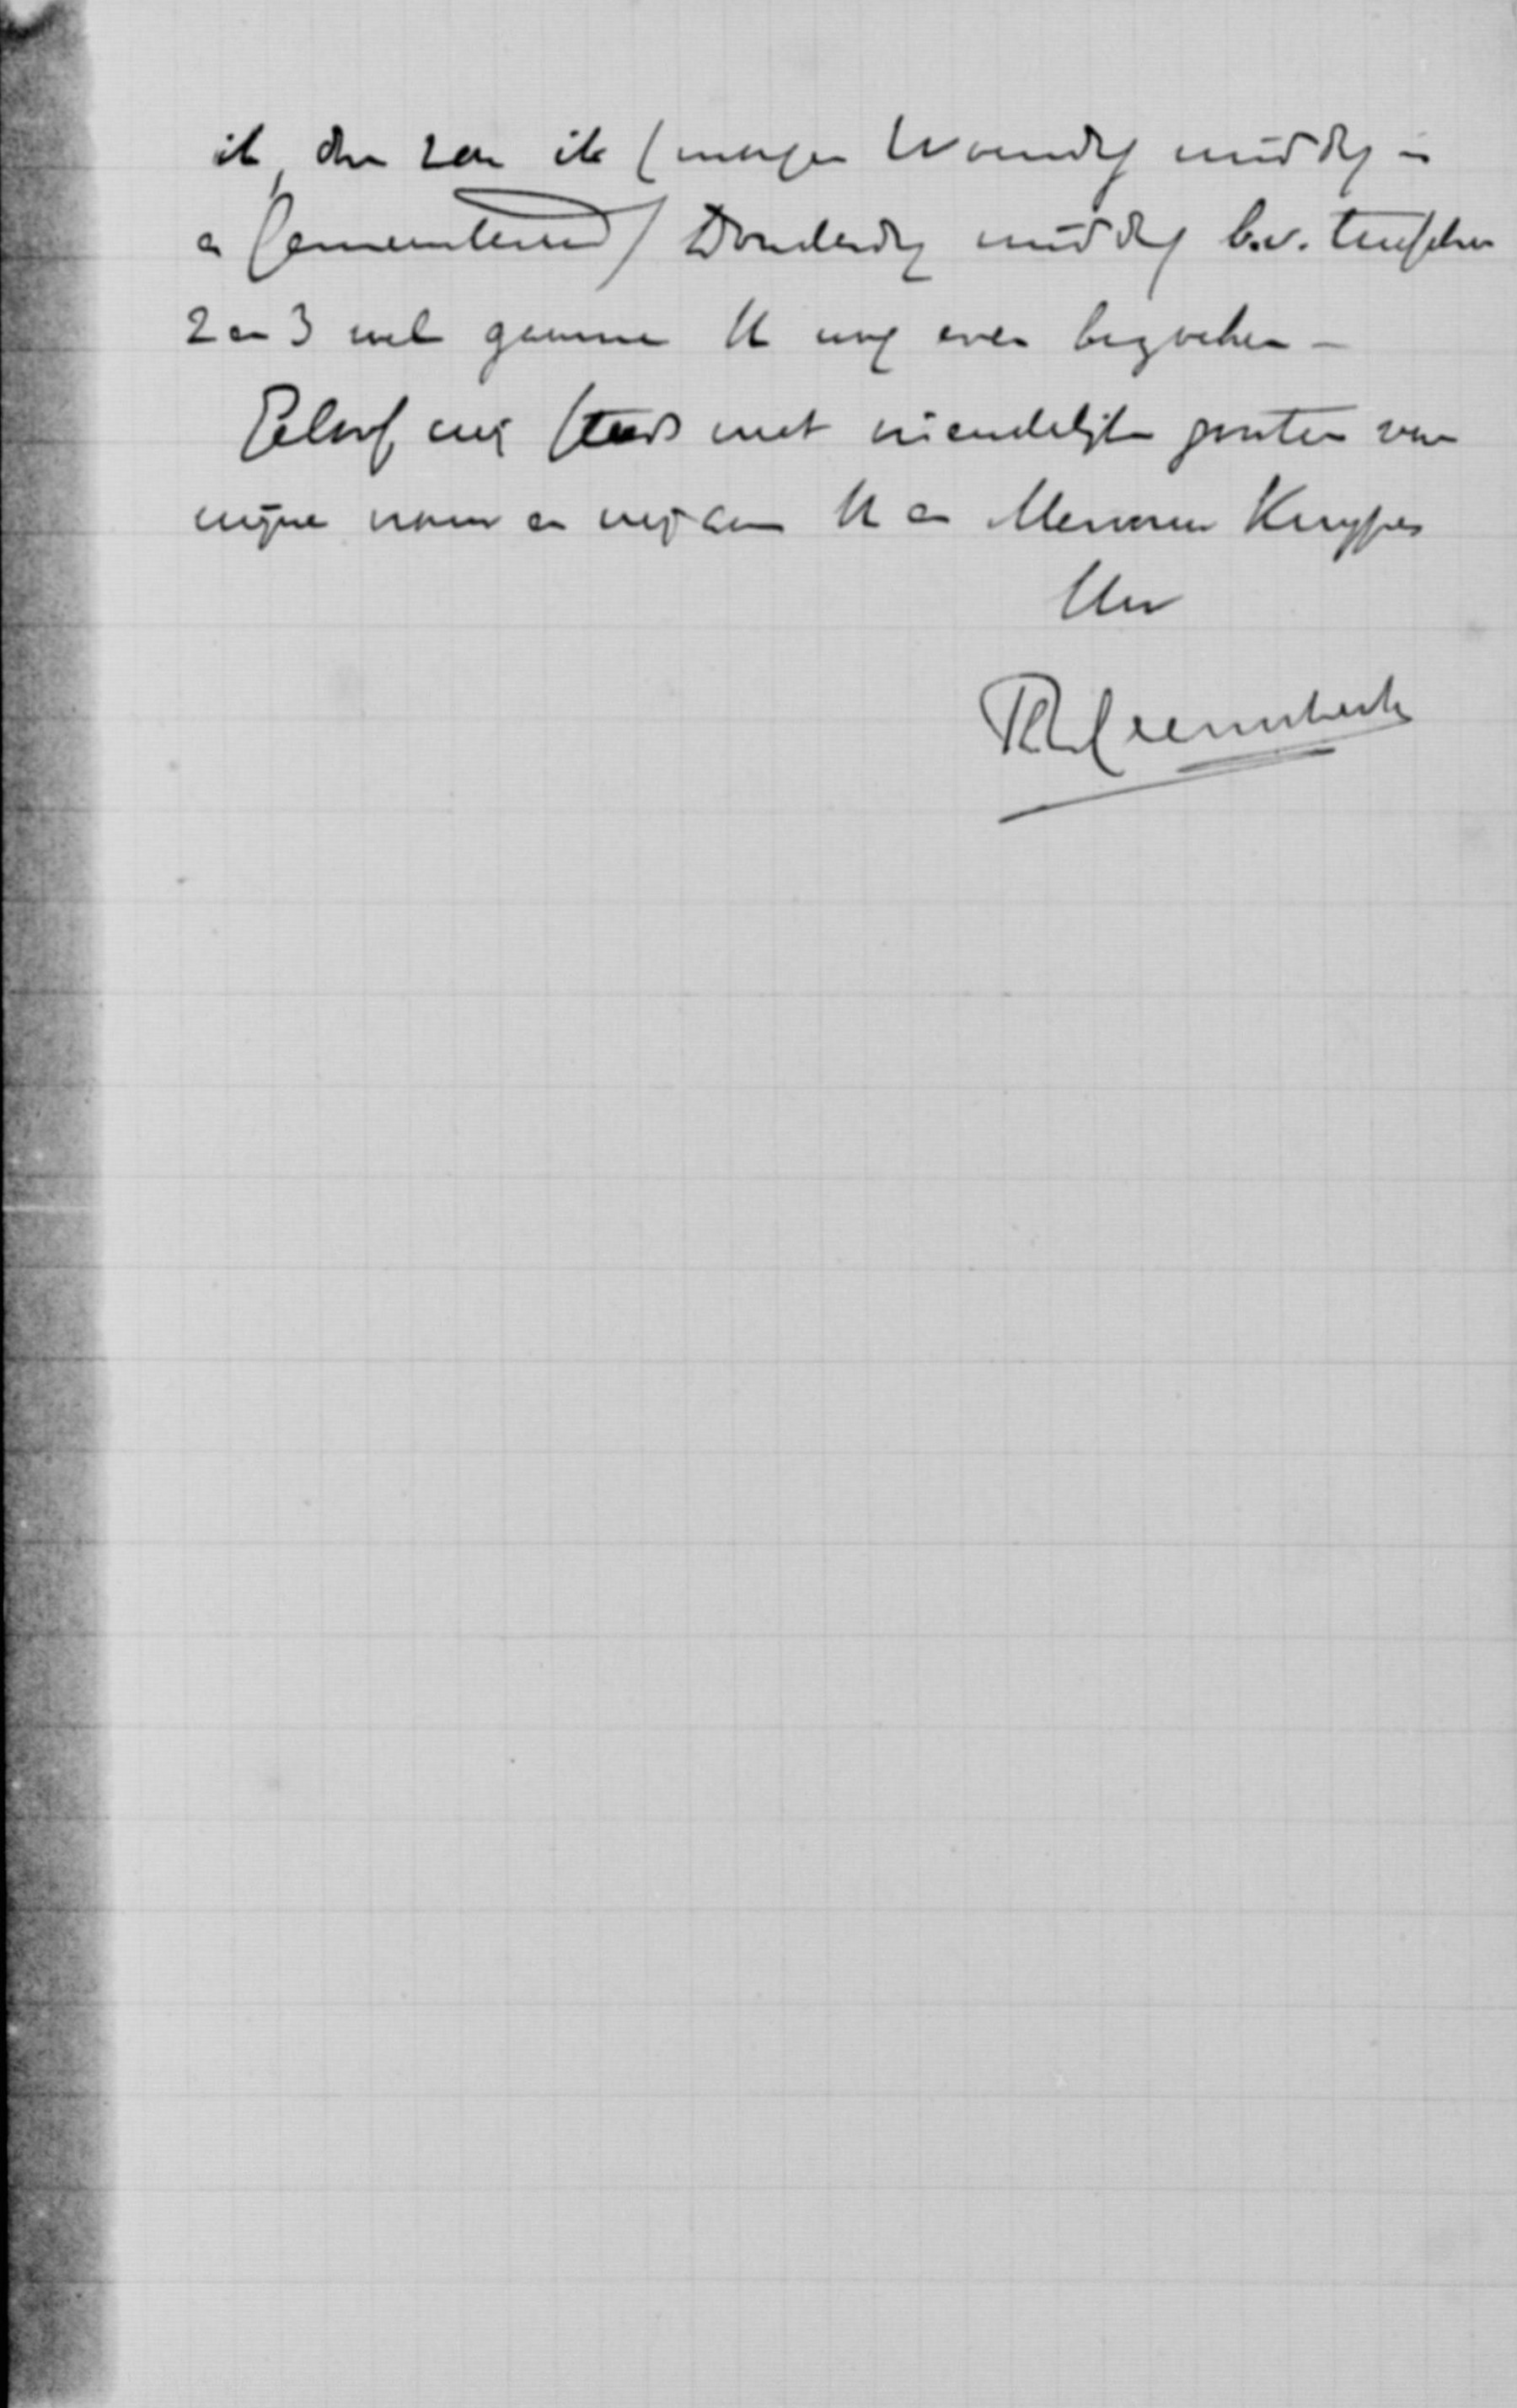 ik, dan zou ik (morgen Woensdag middag is
er Gemeenteraad) Donderdag middag b.v. tusschen
2 en 3 wel gaarne U nog even bezoeken -
Geloof mij steeds met vriendelijke groeten van
mijne vrouw en mij aan U en Mevrouw Kuyper
Uw